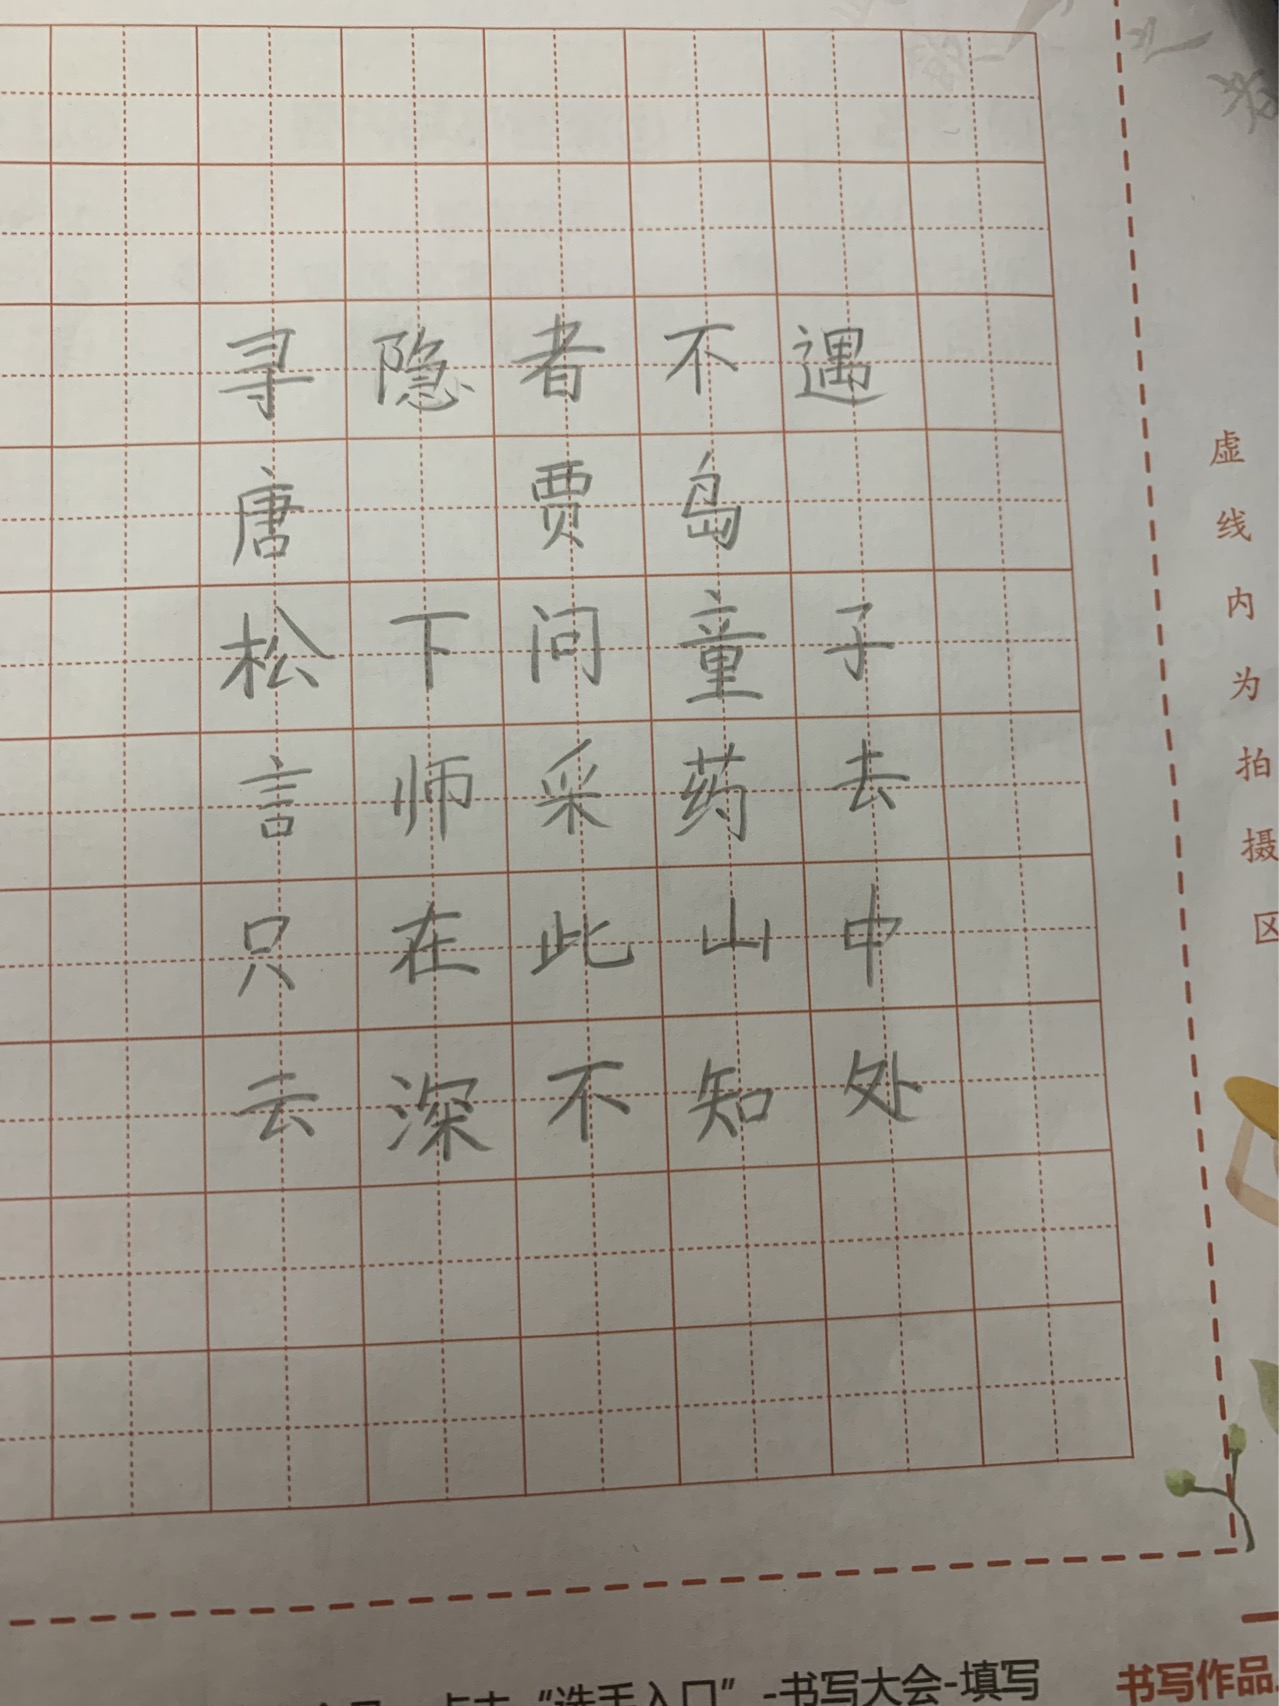 寻隐者不遇
唐 贾岛
松下问童子
言师采药去
只在此山中
去深不知处
虚线内为拍摄区
点击“选手入口”-书写大会-填写
书写作品